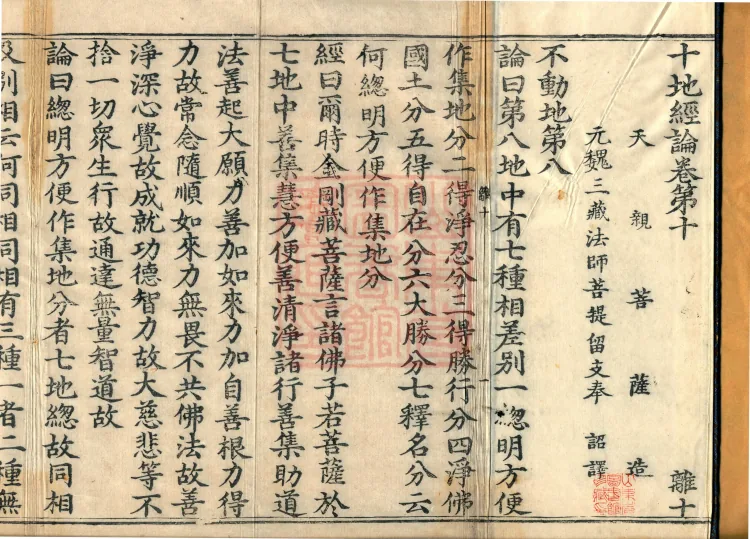 十地經論卷第十 離十
天親菩薩造
元魏三藏法師菩提留支奉 詔譯
不動地第八
論曰第八地中有七種相差別一緫明方便
作集地分二得淨忍分三得勝行分四淨佛
國土分五得自在分六大勝分七釋名分云
何緫明方便作集地分
經曰爾時金剛藏菩薩言諸佛子若菩薩於
七地中善集慧方便善清淨諸行善集助道
法善起大願力善加如來力加自善根力得
力故常念隨順如來力無畏不共佛法故善
淨深心覺故成就功德智力故大慈悲等不
捨一切衆生行故通達無量智道故
論曰緫明方便作集地分者七地緫故同相
及別相云何同相同相有三種一者二種無